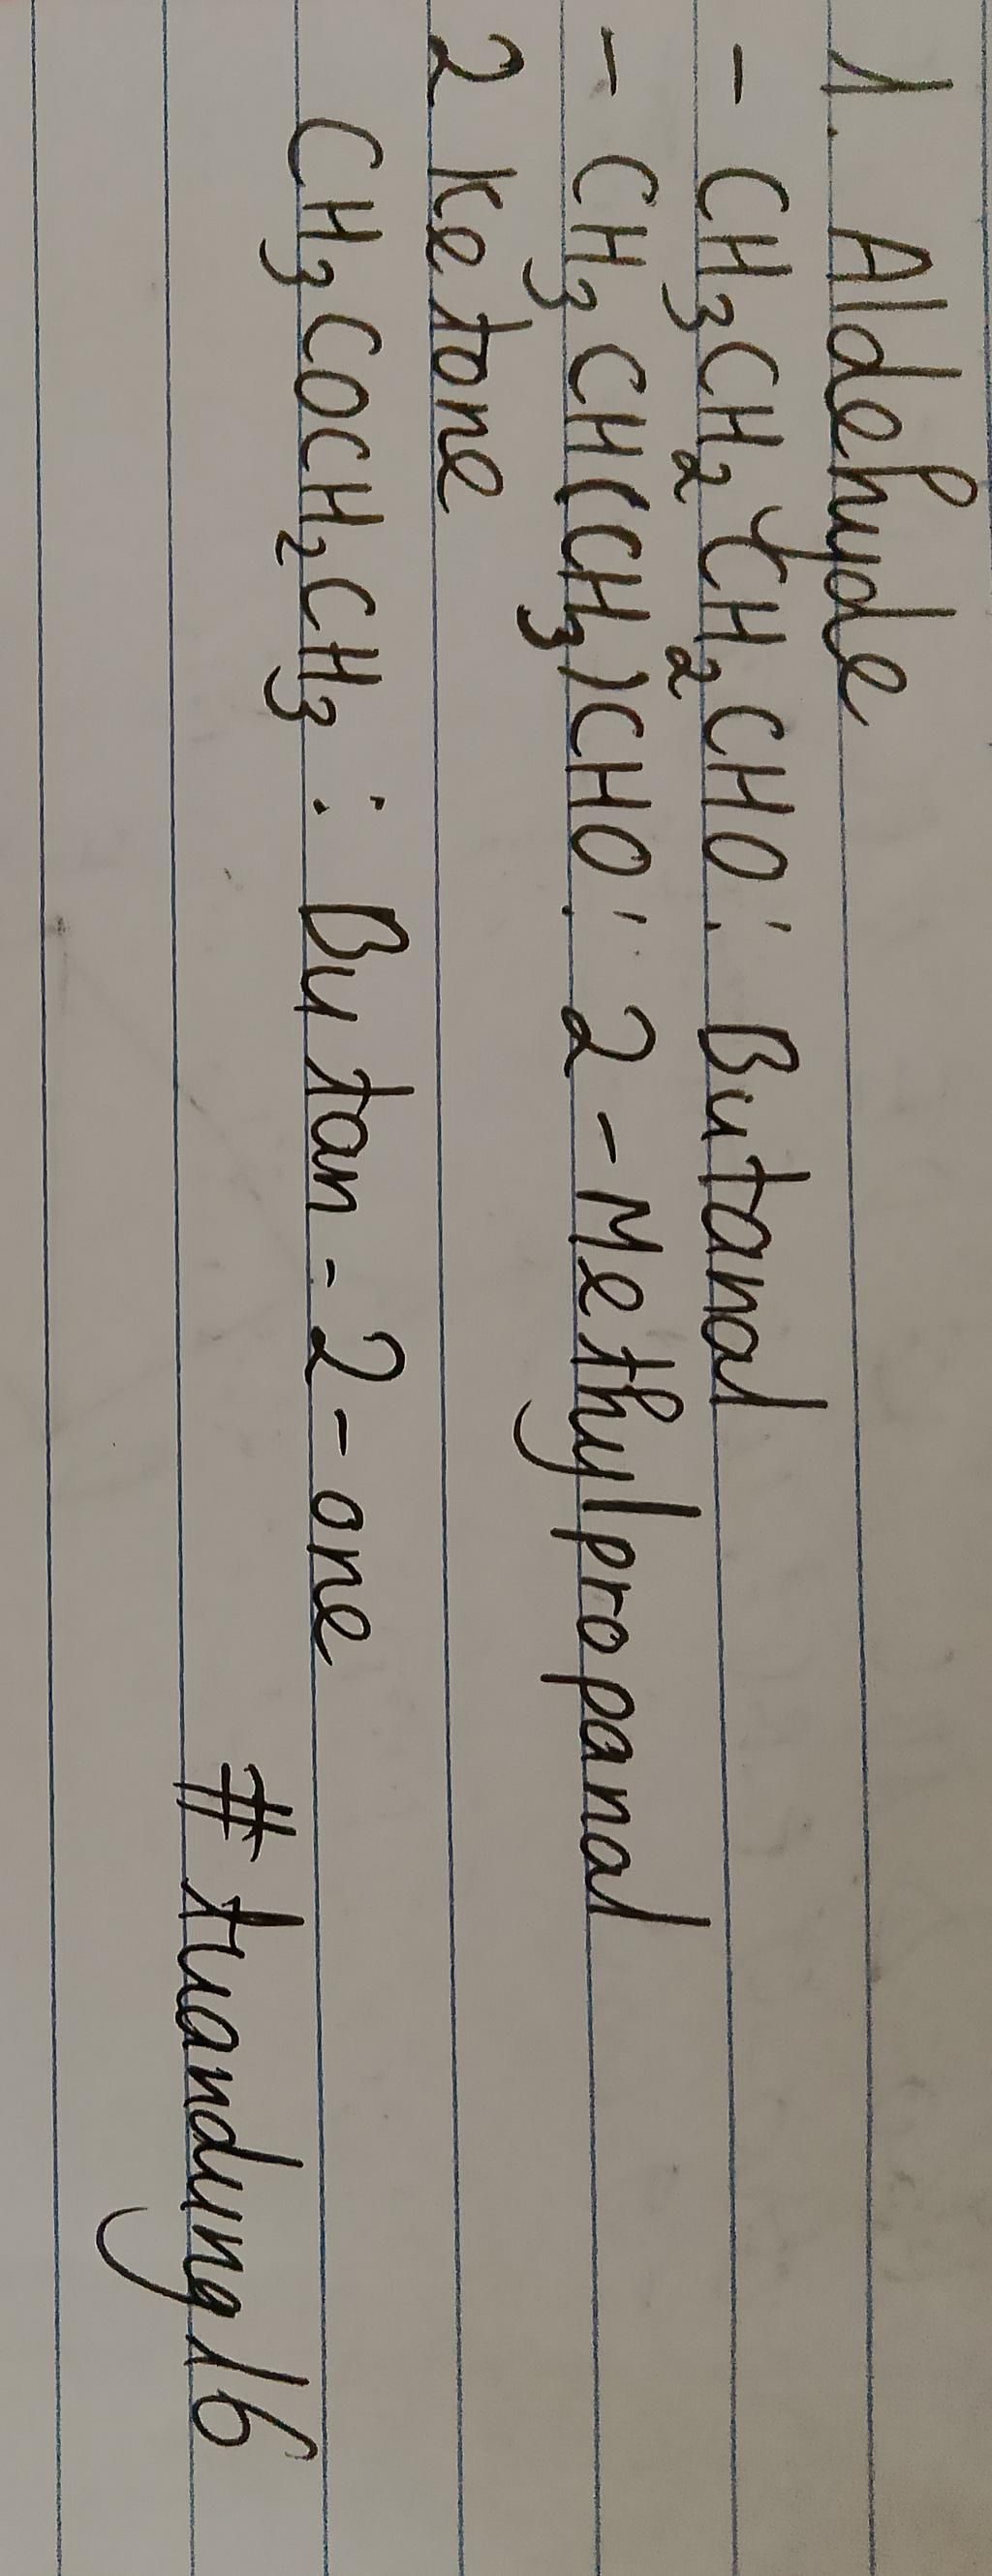 1. Aldehyde
- CH3CH2CH2CHO: Butanal
- CH3CH(CH3)CHO: 2-Methylpropanal
2 Ketone
CH3COCH2CH3: Butan-2-one
#tuandung16